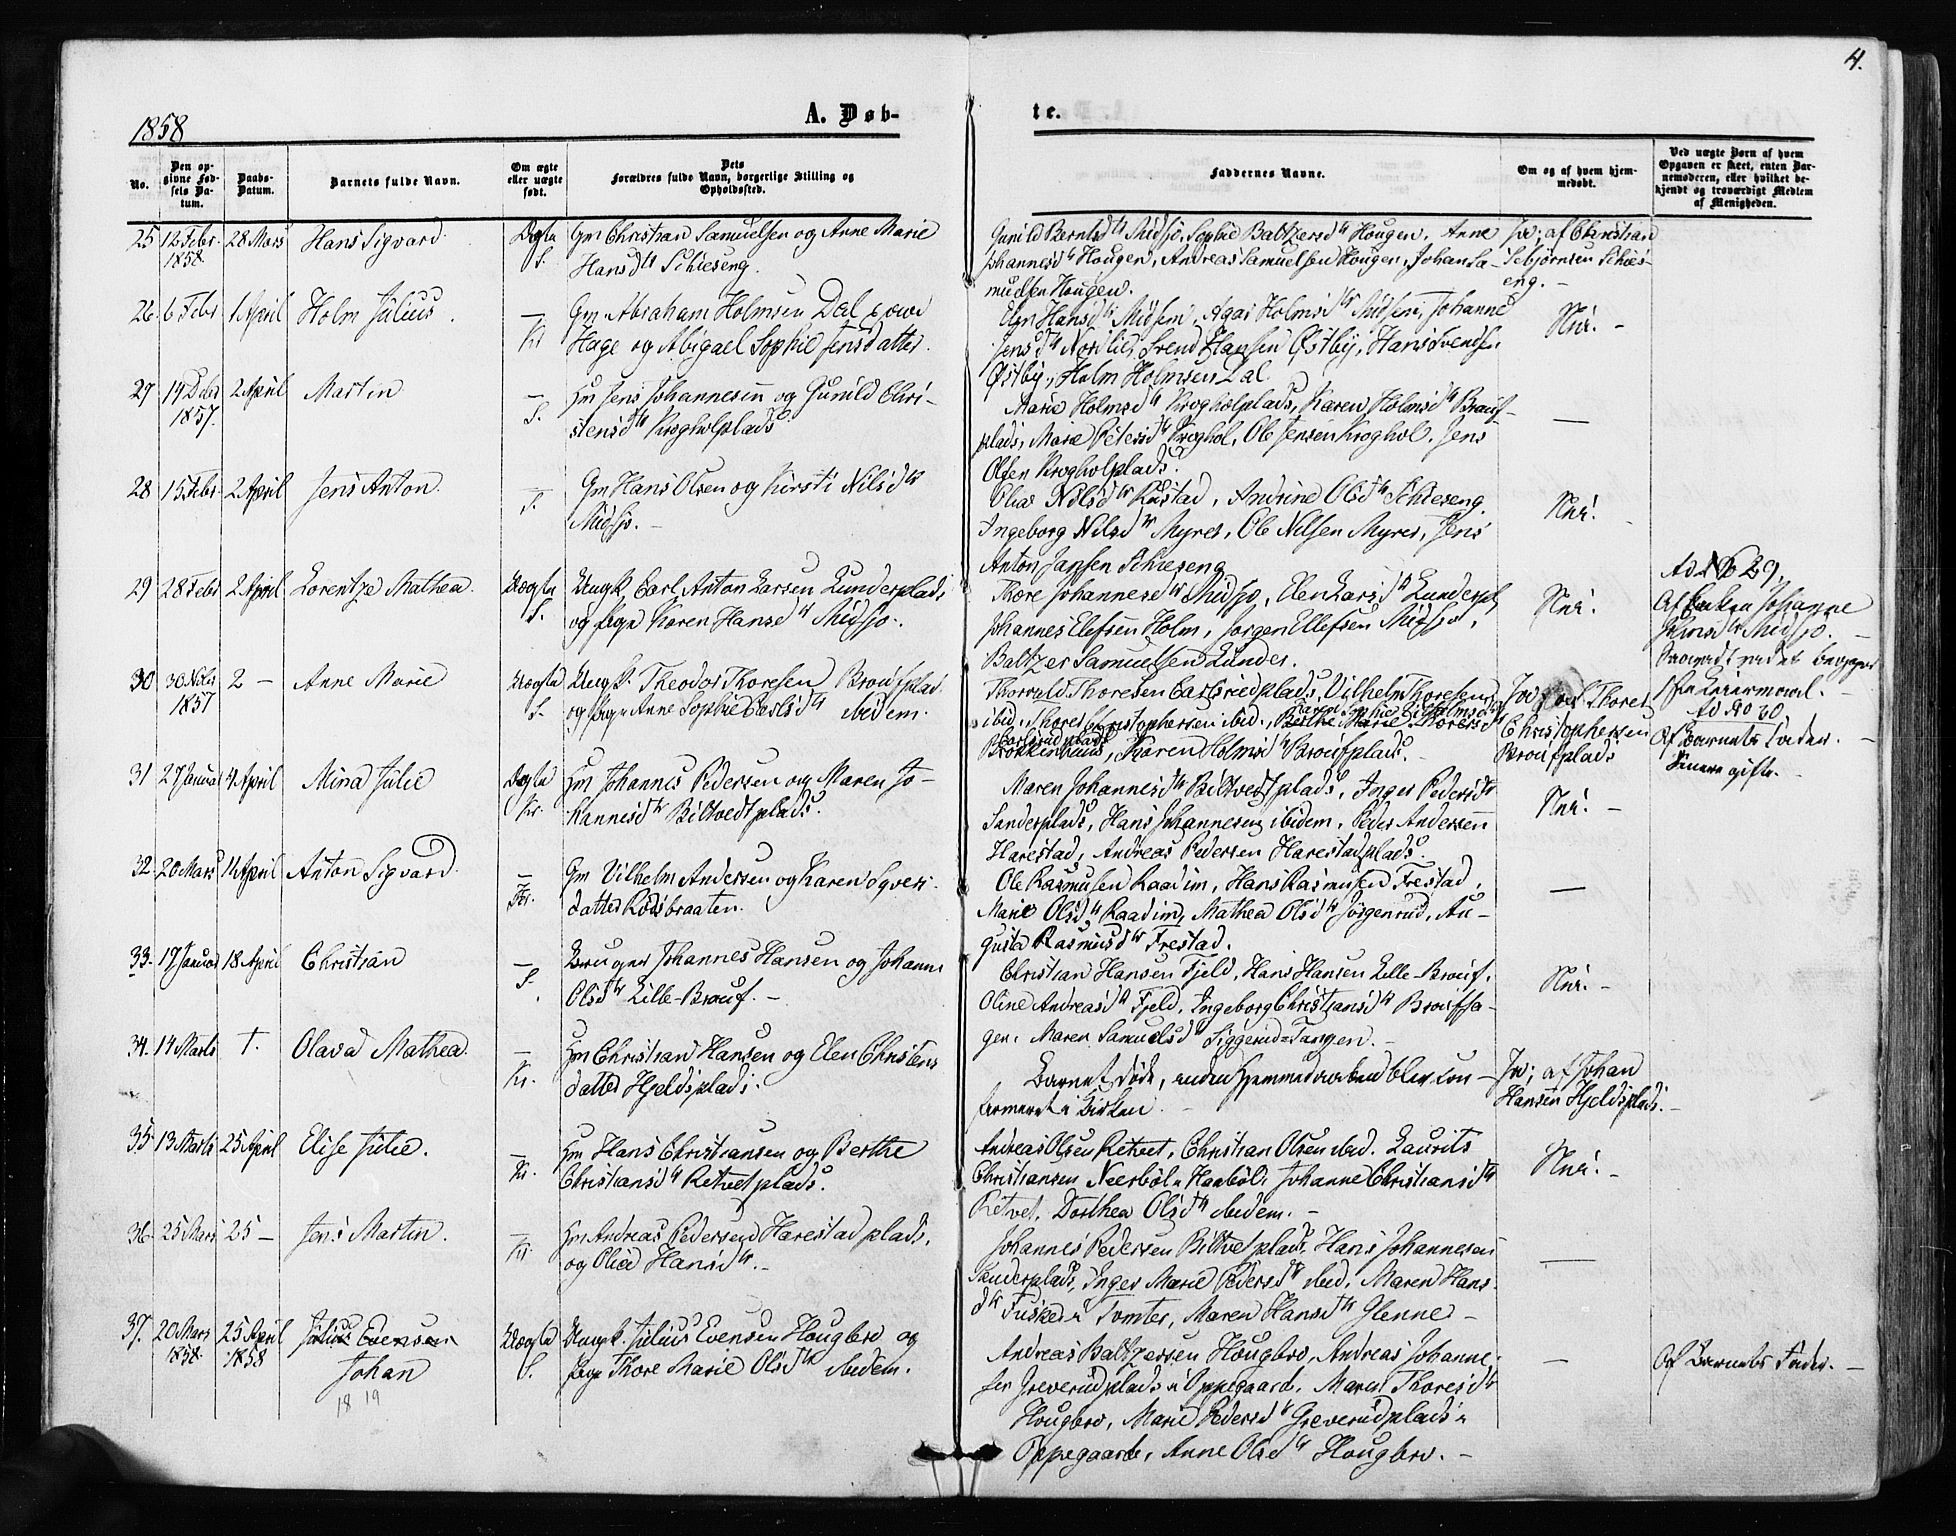 4.
1858
A. Døb-
te.
No.
Den op-
givne Fød-
sels Da-
tum.
Daabs-
Datum.
Barnets fulde Navn.
Om ægte
eller uægte
født.
Dets
Forældres fulde Navn, borgerlige Stilling og
Opholdssted.
Faddernes Navne.
Om og af hvem hjem-
medøbt.
Ved uægte Børn af hvem
Opgaven er skeet, enten Bar-
nemoderen, eller hvilket be-
kjendt og troværdigt Medlem
af Menigheden.
25 12 Febr. 28 Mars Hans Sigvard. Ægte Gm Christian Samuelsen og Anne Marie
1858. S. Hansdtr Schieseng.
Gunild Berntsdtr Midsjø, Sophie Baltzersdtr Hougen, Anne
Johannesdtr Hougen, Andreas Samuelsen Hougen, Johan Sa-
muelsen Hougen.
Ja; af Christian
Schies-
eng. -
26. 6 Febr 1 April Holm Julius. — Gm Abraham Holmsen Dal
Kr Hage og Abigael Sophie Jensdatter.
Hansdtr Midsem, Holmsdtr Midsem, Johanne
Jensdtr Nordlie, Svend Hansen Østby, Hans Svendsen
Østby, Holm Holmsen Dal.
Nei. -
27 2 April Martin — Hm Jens Johannesen og Gunild Chri-
1857. S. stensdtr Krogholplads.
Marie Holmsdtr Krogholplads, Karen Holmsdtr Brouf-
plads, Marie Petersdtr Kroghol, Ole Jensen Kroghol, Jens
Olsen Krogholplads.
—
28 15 Febr 2 April Jens Anton. — Gm Hans Olsen og Kirsti Nilsdtr
S. Midsjø. -
Nilsdtr Rustad, Andrine Olsdtr Schieseng
Ingeborg Nilsdtr Myrer, Ole Nilsen Myrer, Jens
Anton Jansen Schieseng
Nei. -
29 28 Febr 2 April Lorentze Mathea. Uægte Ungk. Carl Anton Larsen Lunderplads
S. og Pige Karen Hansdtr Midsjø.
Thore Johannesdtr Midsjø, Elen Larsdtr Lunderpl,
Johannes Elefsen Holm, Jørgen Ellefsen Midsjø,
Baltzer Samuelsen Lunder.
Nei.
Ad No 29,
Af Enken Johanne
Midsjø. -
30 30 Novbr 2 — Anne Marie Uægte Ungk. Theodor Thoresen Broufplad
1857 S. og Pige Anne Sophie Carlsdtr ibidem.
Thorvald Thoresen Carlsrudplads, Vilhelm Thoresen
ibid. Thorer Christophersen ibid., Berthe Marie Thoresdtr
Karen Holmsdtr Broufplads. -
Ja; af Thorer
Christophersen
Broufplads
Ad No 30
Af Barnets Fader. -
31 27 Januar 4 April Mina Julie Ægte Hm Johannes Pedersen og Maren Jo-
Kr. hannesdtr Biltvedtplads.
Maren Johannesdtr Biltvedtplads, Inger Pedersdtr
Sanderplads, Hans Johannesen ibidem, Peder Andersen
Harestad, Andreas Pedersen Harestadplads.
Nei. -
32. 20 Mars 11 April Anton Sigvard. — Gm Vilhelm Andersen og Karen Syvers-
Kr. datter Rødsbraaten.
Ole Rasmusen Raadim, Hans Rasmusen Frestad,
Marie Olsdtr Raadim, Mathea Olsdtr Jørgenrud, Au-
gusta Rasmusdtr Frestad.
—
33. 17 Januar 18 April Christian — Bruger Johannes Hansen og Johanne
S. Olsdtr Lille-Brouf. -
Christian Hansen Fjeld, Hans Hansen Lille-Brouf,
Oline Andreasdtr Fjeld, Ingeborg Christiansdtr Broufsa-
gen, Maren Samuelsdtr Siggerud-Tangen. -
Nei. -
34. 14 Marts †. Olava Mathea. — Hm Christian Hansen og Elen Christens
Kr. datter Hjeldsplads.
Barnet døde, inden Hjemmedaaben blev con-
firmeret i Kirken. -
Ja; af Johan
Hansen Hjeldsplads. -
35. 13 Marts 25 April Elise Julie. — Hm Hans Christiansen og Berthe
Kr. Christiansdtr Retvetplads.
Andreas Olsen Retvet, Christian Olsen ibid. Laurits
Christiansen Neerbøl i Haabøl, Johanne Christiansdtr
Retvet, Dorthea Olsdtr ibidem. -
Nei. -
36. 25 Mars 25 — Jens Martin. — Hm Andreas Pedersen Harestadplads,
Kr. og Olea Hansdtr. -
Johannes Pedersen Biltvetplads, Hans Johannesen
Sanderplads, Inger Marie Pedersdtr ibid, Maren Hans-
dtr Fusker i Tomter, Maren Hansdtr Glenne -
—
37. 20 Mars 25 April Julius Evensen Uægte Ungk. Julius Evensen Hougbro og
1858. 1858 Johan S. Pige Thore Marie Olsdtr ibidem.
18 19
Andreas Baltzersen Hougbro, Andreas Johanne-
sen Greverudplads i Oppegaard, Maren Thoresdtr
Hougbro, Marie Pedersdtr Greverudplads i
Oppegaard, Anne Olsdtr Hougbro. -
—
Af Barnets Fader. -